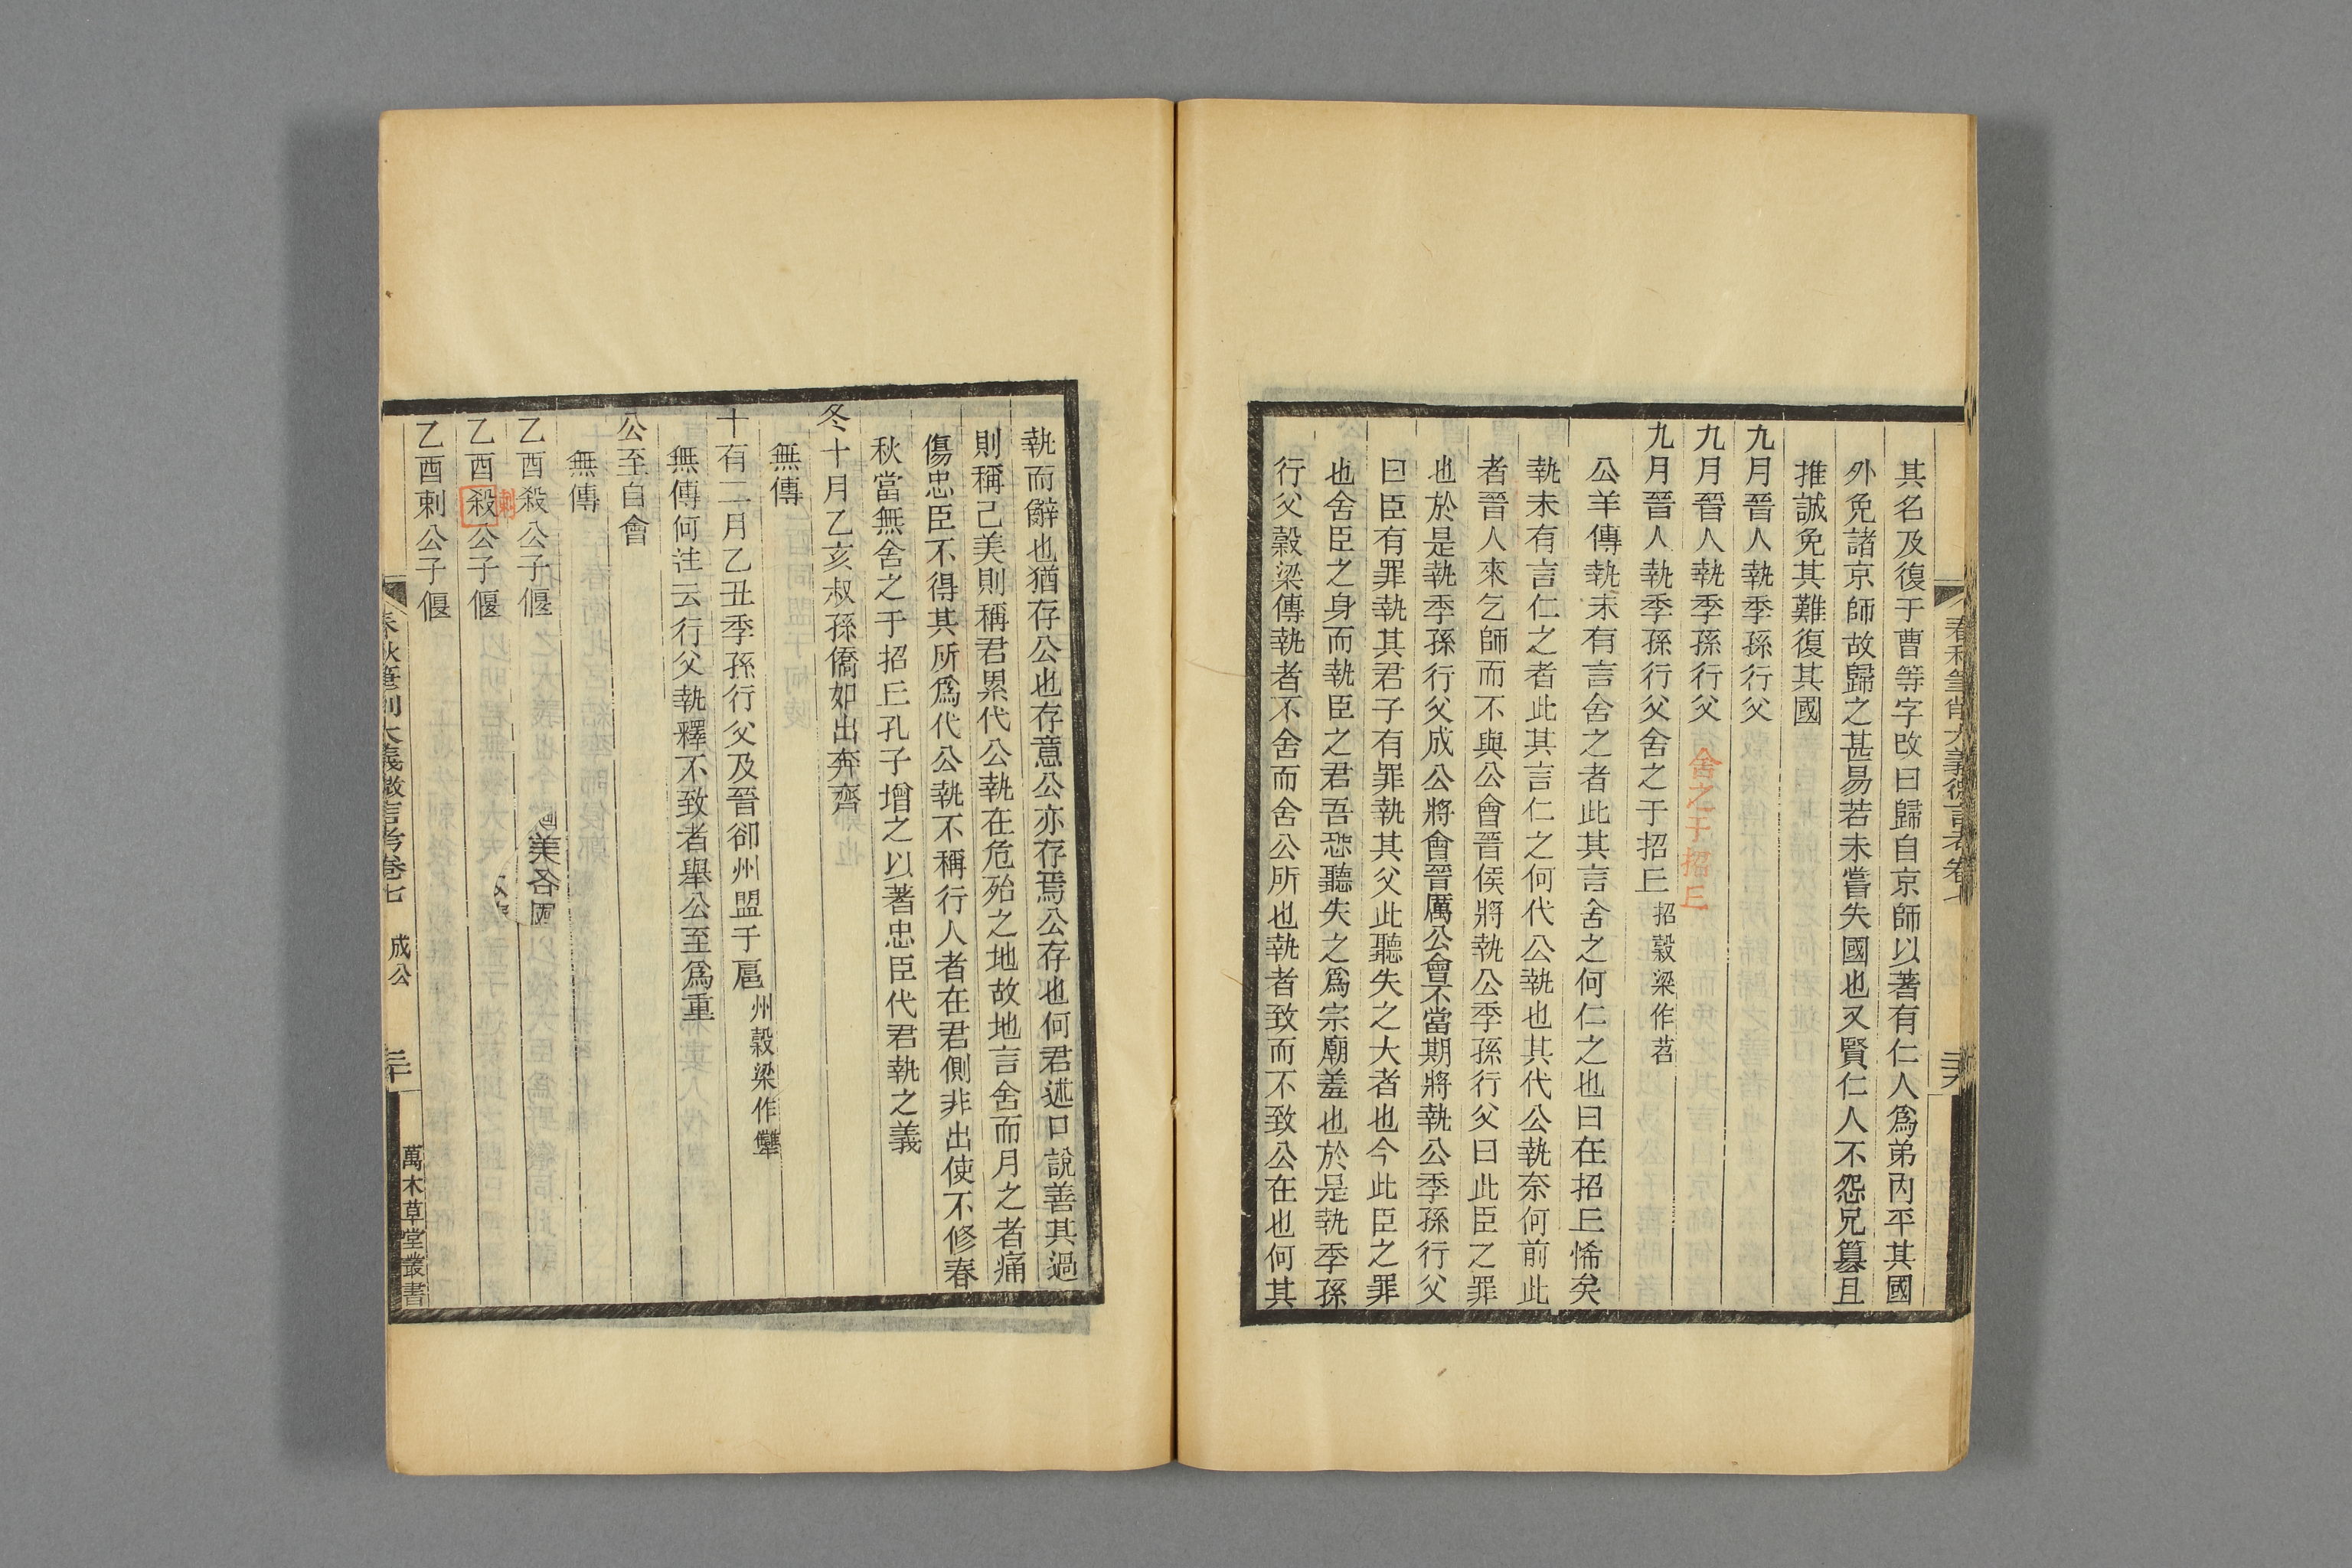 其名及復于曹等字改曰歸自京師以著有仁人爲弟內平其國
外免諸京師故歸之甚易若未嘗失國也又賢仁人不怨兄篡且
推誠免其難復其國
九月晉人執季孫行父
九月晉人執季孫行父舍之于招丘
九月晉人執季孫行父舍之于招丘招穀梁作苕
公羊傳執未有言舍之者此其言舍之何仁之也曰在招丘悕矣
執未有言仁之者此其言仁之何代公執也其代公執奈何前此
者晉人來乞師而不與公會晉侯將執公季孫行父曰此臣之罪
也於是執季孫行父成公將會晉厲公會不當期將執公季孫行父
曰臣有罪執其君子有罪執其父此聽失之大者也今此臣之罪
也舍臣之身而執臣之君吾恐聽失之爲宗廟羞也於是執季孫
行父穀梁傳執者不舍而舍公所也執者致而不致公在也何其
執而辭也猶存公也存意公亦存焉公存也何君述口說善其過
則稱己美則稱君累代公執在危殆之地故地言舍而月之者痛
傷忠臣不得其所爲代公執不稱行人者在君側非出使不修春
秋當無舍之于招丘孔子增之以著忠臣代君執之義
冬十月乙亥叔孫僑如出奔齊
無傳
十有二月乙丑季孫行父及晉郤州盟于扈州穀梁作犨
無傳何注云行父執釋不致者舉公至爲重
公至自會
無傳
乙酉殺公子偃
乙酉殺公子偃
刺
乙酉刺公子偃
春秋筆削大義微言考卷七 成公 萬木草堂叢書